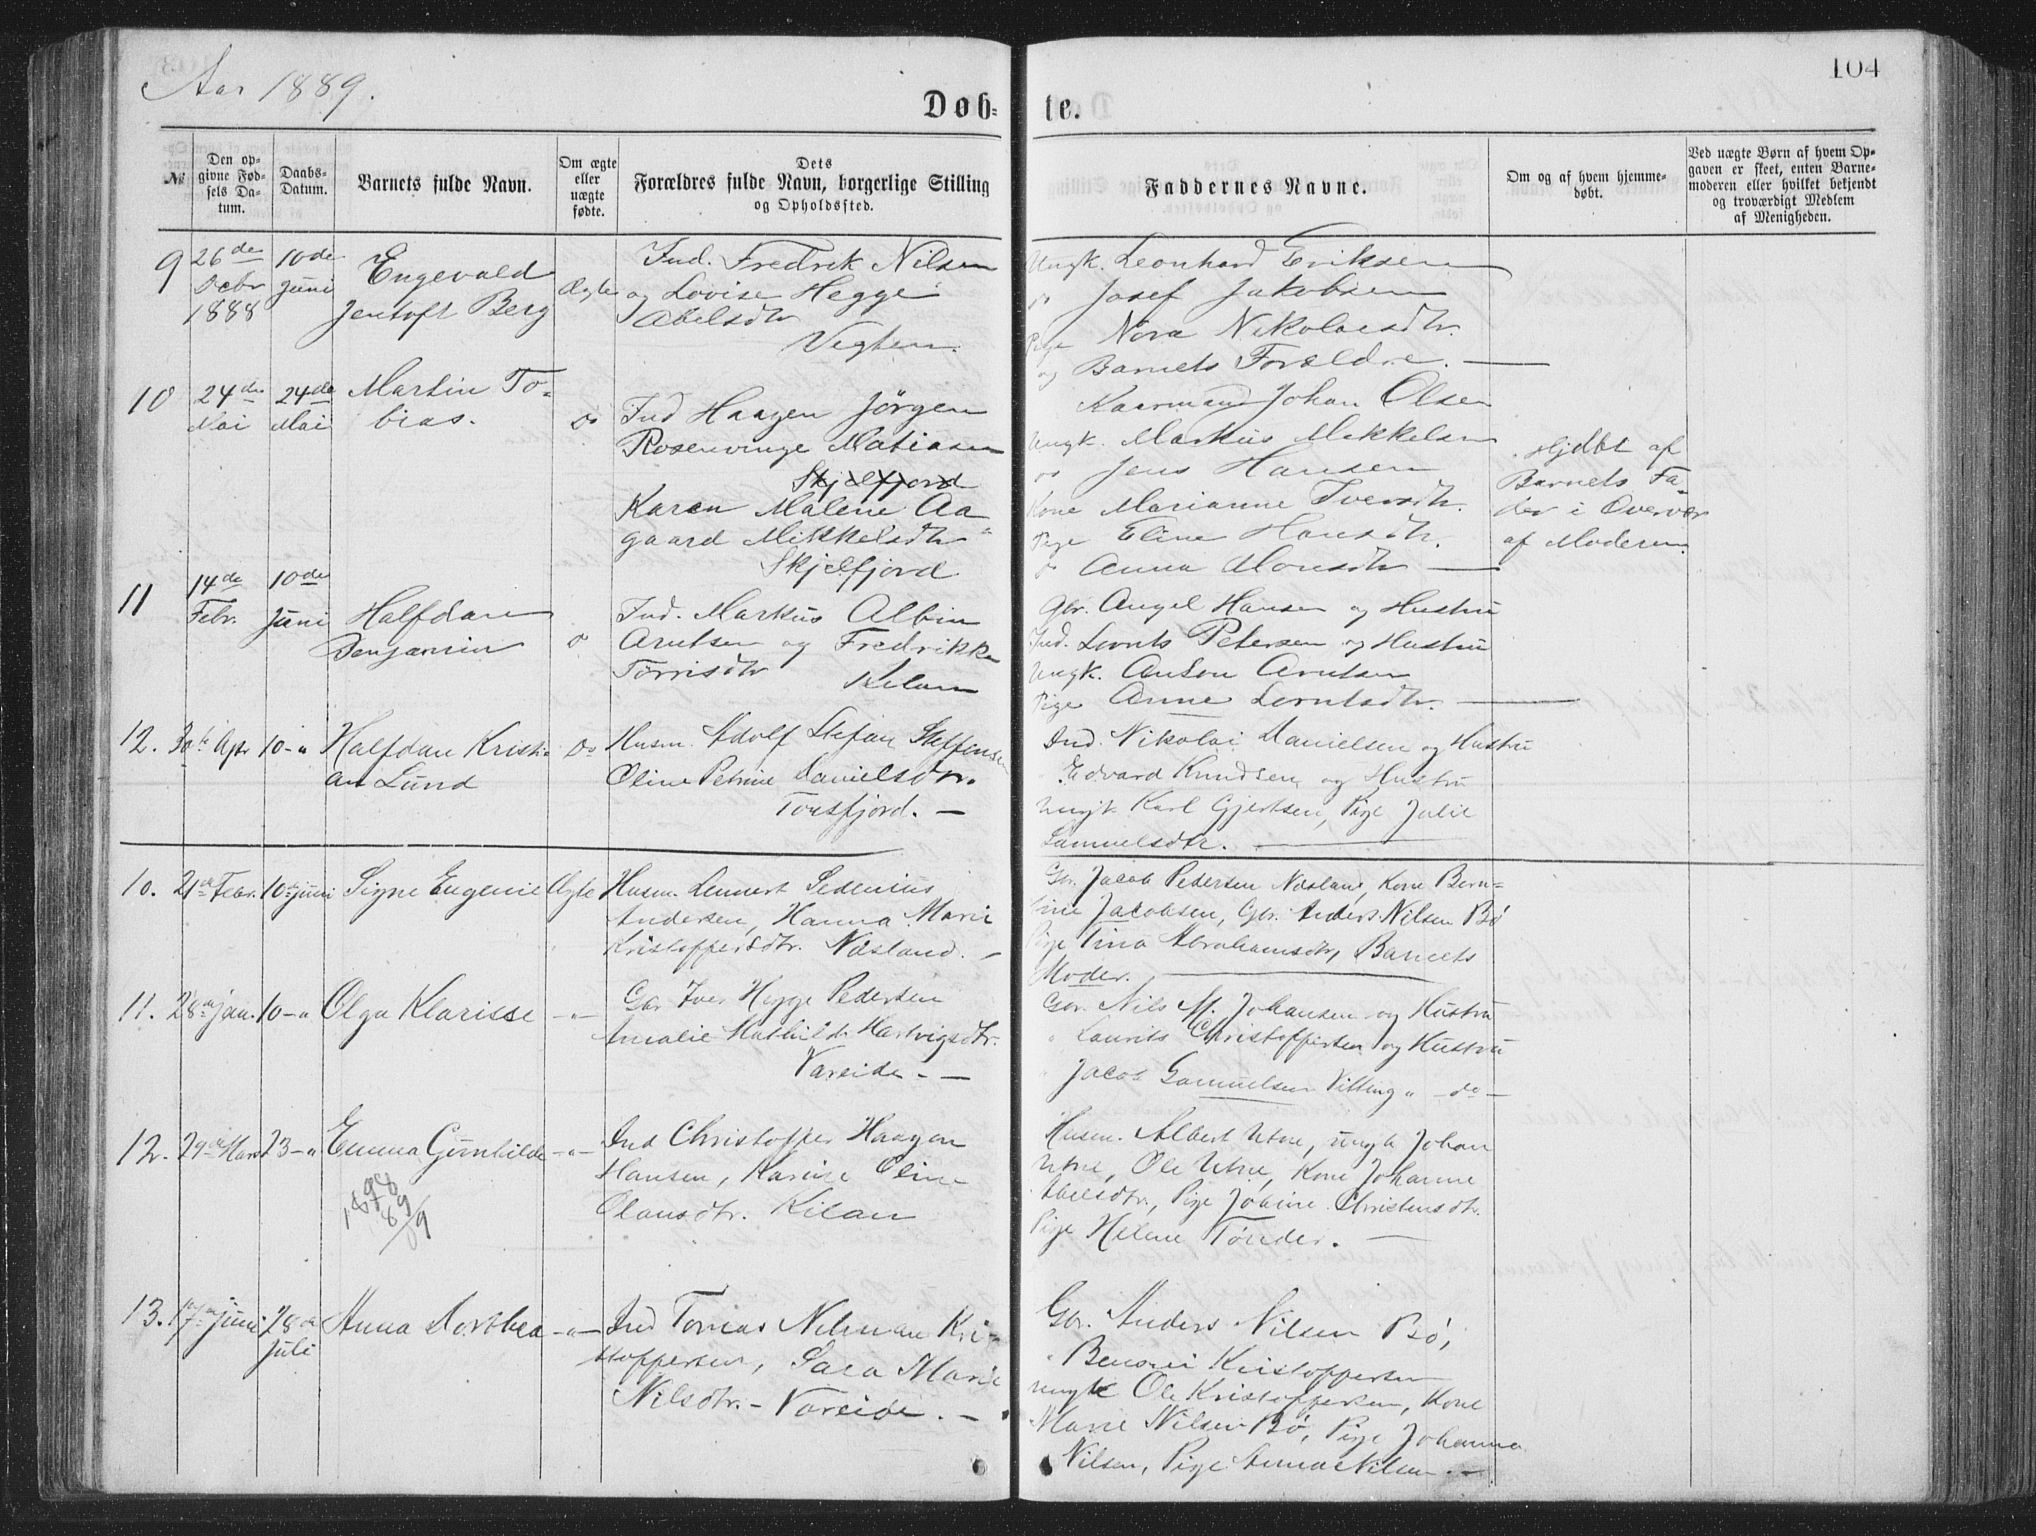 Aar 1889.
104
Døb-
te.
№
Den op-
givne Fød-
sels Da-
tum.
Daabs-
Datum.
Barnets fulde Navn.
Om ægte
eller
uægte
fødte.
Dets
Forældres fulde Navn, borgerlige Stilling
og Opholdssted.
Faddernes Navne.
Om og af hvem hjemme-
døbt.
Ved uægte Børn af hvem Op-
gaven er skeet, enten Barne-
moderen eller hvilket bekjendt
og troværdigt Medlem
af Menigheden.
9
26de
Debr
1888
10de
Juni
Engevald
Jentoft Berg
Ægte
Ind. Fredrik Nilsen
og Lovise Hegge
Abelsdtr
Vegten.
Ungk. Leonhard Eriksen
do Josef Jakobsen
Pige Nora Nikolaisdtr.
og Barnets Forældre.
10
24de
Mai
24de
Mai
Martin To-
bias.
do
Ind Haagen Jørgen
Rosenvinge Matiasen
Skjelfjord
Karen Malene Aa-
gaard Mikkelsdtr
Skjelfjord
Kaarmand Johan Olsen
Ungk. Markus Mikkelsen
do Jens Hansen
Kone Marianne Iversdtr.
Pige Eline Hansdtr.
do Anna Monsdtr
Hjdbt af
Barnets Fa-
der i Overvær
af Moderen.
11
14de
Febr.
10de
Juni
Halfdan
Benjamin
do
Ind. Markus Albin
Arntsen og Fredrikke
Tørrisdtr
Kilan
Gbr. Angel Hansen og Hustru
Ind. Lornts Petersen og Hustru
Ungk. Anton Arntsen
Pige Anne Lorntsdtr.
12. 30te Apr 10-"
Halfdan Kristi-
an Lund
do
Husm. Adolf Stefan Steffensen
Oline Petrine Danielsdtr.
Torsfjord. —
Ind. Nikolai Danielsen og Hustru
Edvard Knudsen og Hustru
Ungk Karl Gjertsen, Pige Julie
Samuelsdtr.
10. 21de Febr. 10de Juni
Signe Eugenie
Ægte
Husm. Lennert Sedenius
Andersen, Hanna Marie
Kristoffersdtr. Næsland. —
Gbr. Jacob Pedersen Næsland, Kone Bern-
tine Jacobsen, Gbr. Anders Nilsen Bø
Pige Tina Abrahamsdtr, Barnets
Moder.
11. 28de jan. 10-"
Olga Klarisse
—"—
Gbr Iver Hegge Pedersen
Amalie Mathilde Hartvigsdtr.
Vareide. —
Gbr. Nils M. Johansen og Hustru
" Laurits Christoffersen og Hustru
" Jacob Samuelsen Vitting " —do—
12. 29de Mars 23-"
Emma Gunhilde
—"—
Ind Christoffer Haagen
Hansen, Karine Oline
Olausdtr. Kilan
Husm. Albert Utne, ungk Johan
Utne, Ole Utne, Kone Johanne
Abelsdtr, Pige Jobine Christensdtr.
Pige Helene Tønder. —
13. 17de juni 28de
juli
Anna Dorthea
—"—
Ind Tomas Nilman Kri-
stoffersen, Sara Marie
Nilsdtr. - Vareide. —
Gbr. Anders Nilsen Bø,
" Benoni Kristoffersen
ungk Ole Kristoffersen, Kone
Marie Nilsen Bø, Pige Johanna
Nilsen, Pige Anna Nilsen. —